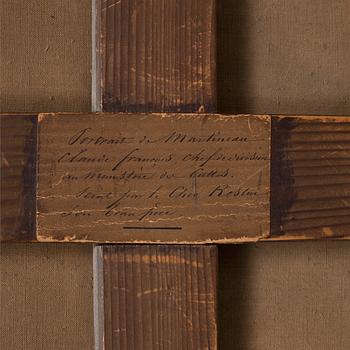 Portrait de Martineau
Claude françois, chef de division
au Ministère de Cultes.
Peint par le Chev Roslin
son beau père